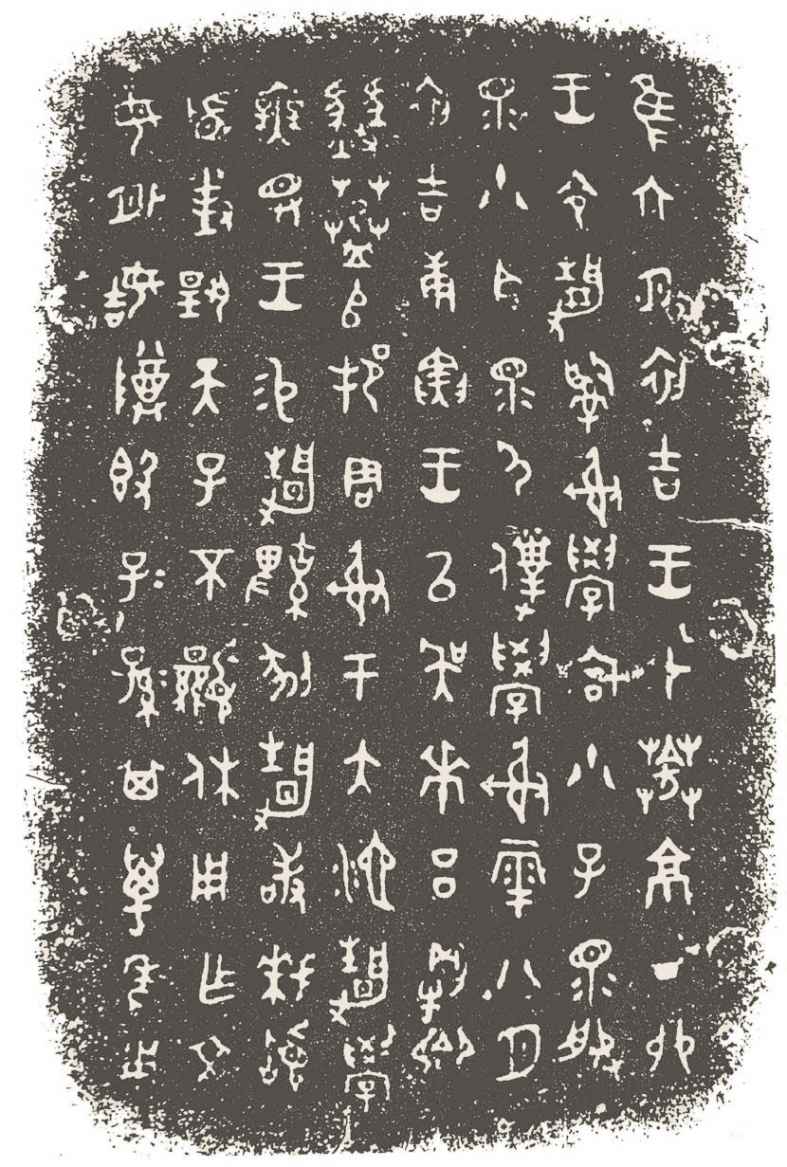 隹六月初吉王才𦮘京丁卯
王令靜𤔲射學宮小子眔服
眔小臣眔尸僕學射雩八月
初吉庚寅王以吳𠦪呂剛卿
𢿢𦮘𠂤邦周射于大池靜學
無斁王易靜鞞剢靜敢拜𩒨
首對揚天子不顯休用乍文
母外姞尊簋子=孫=其萬年用